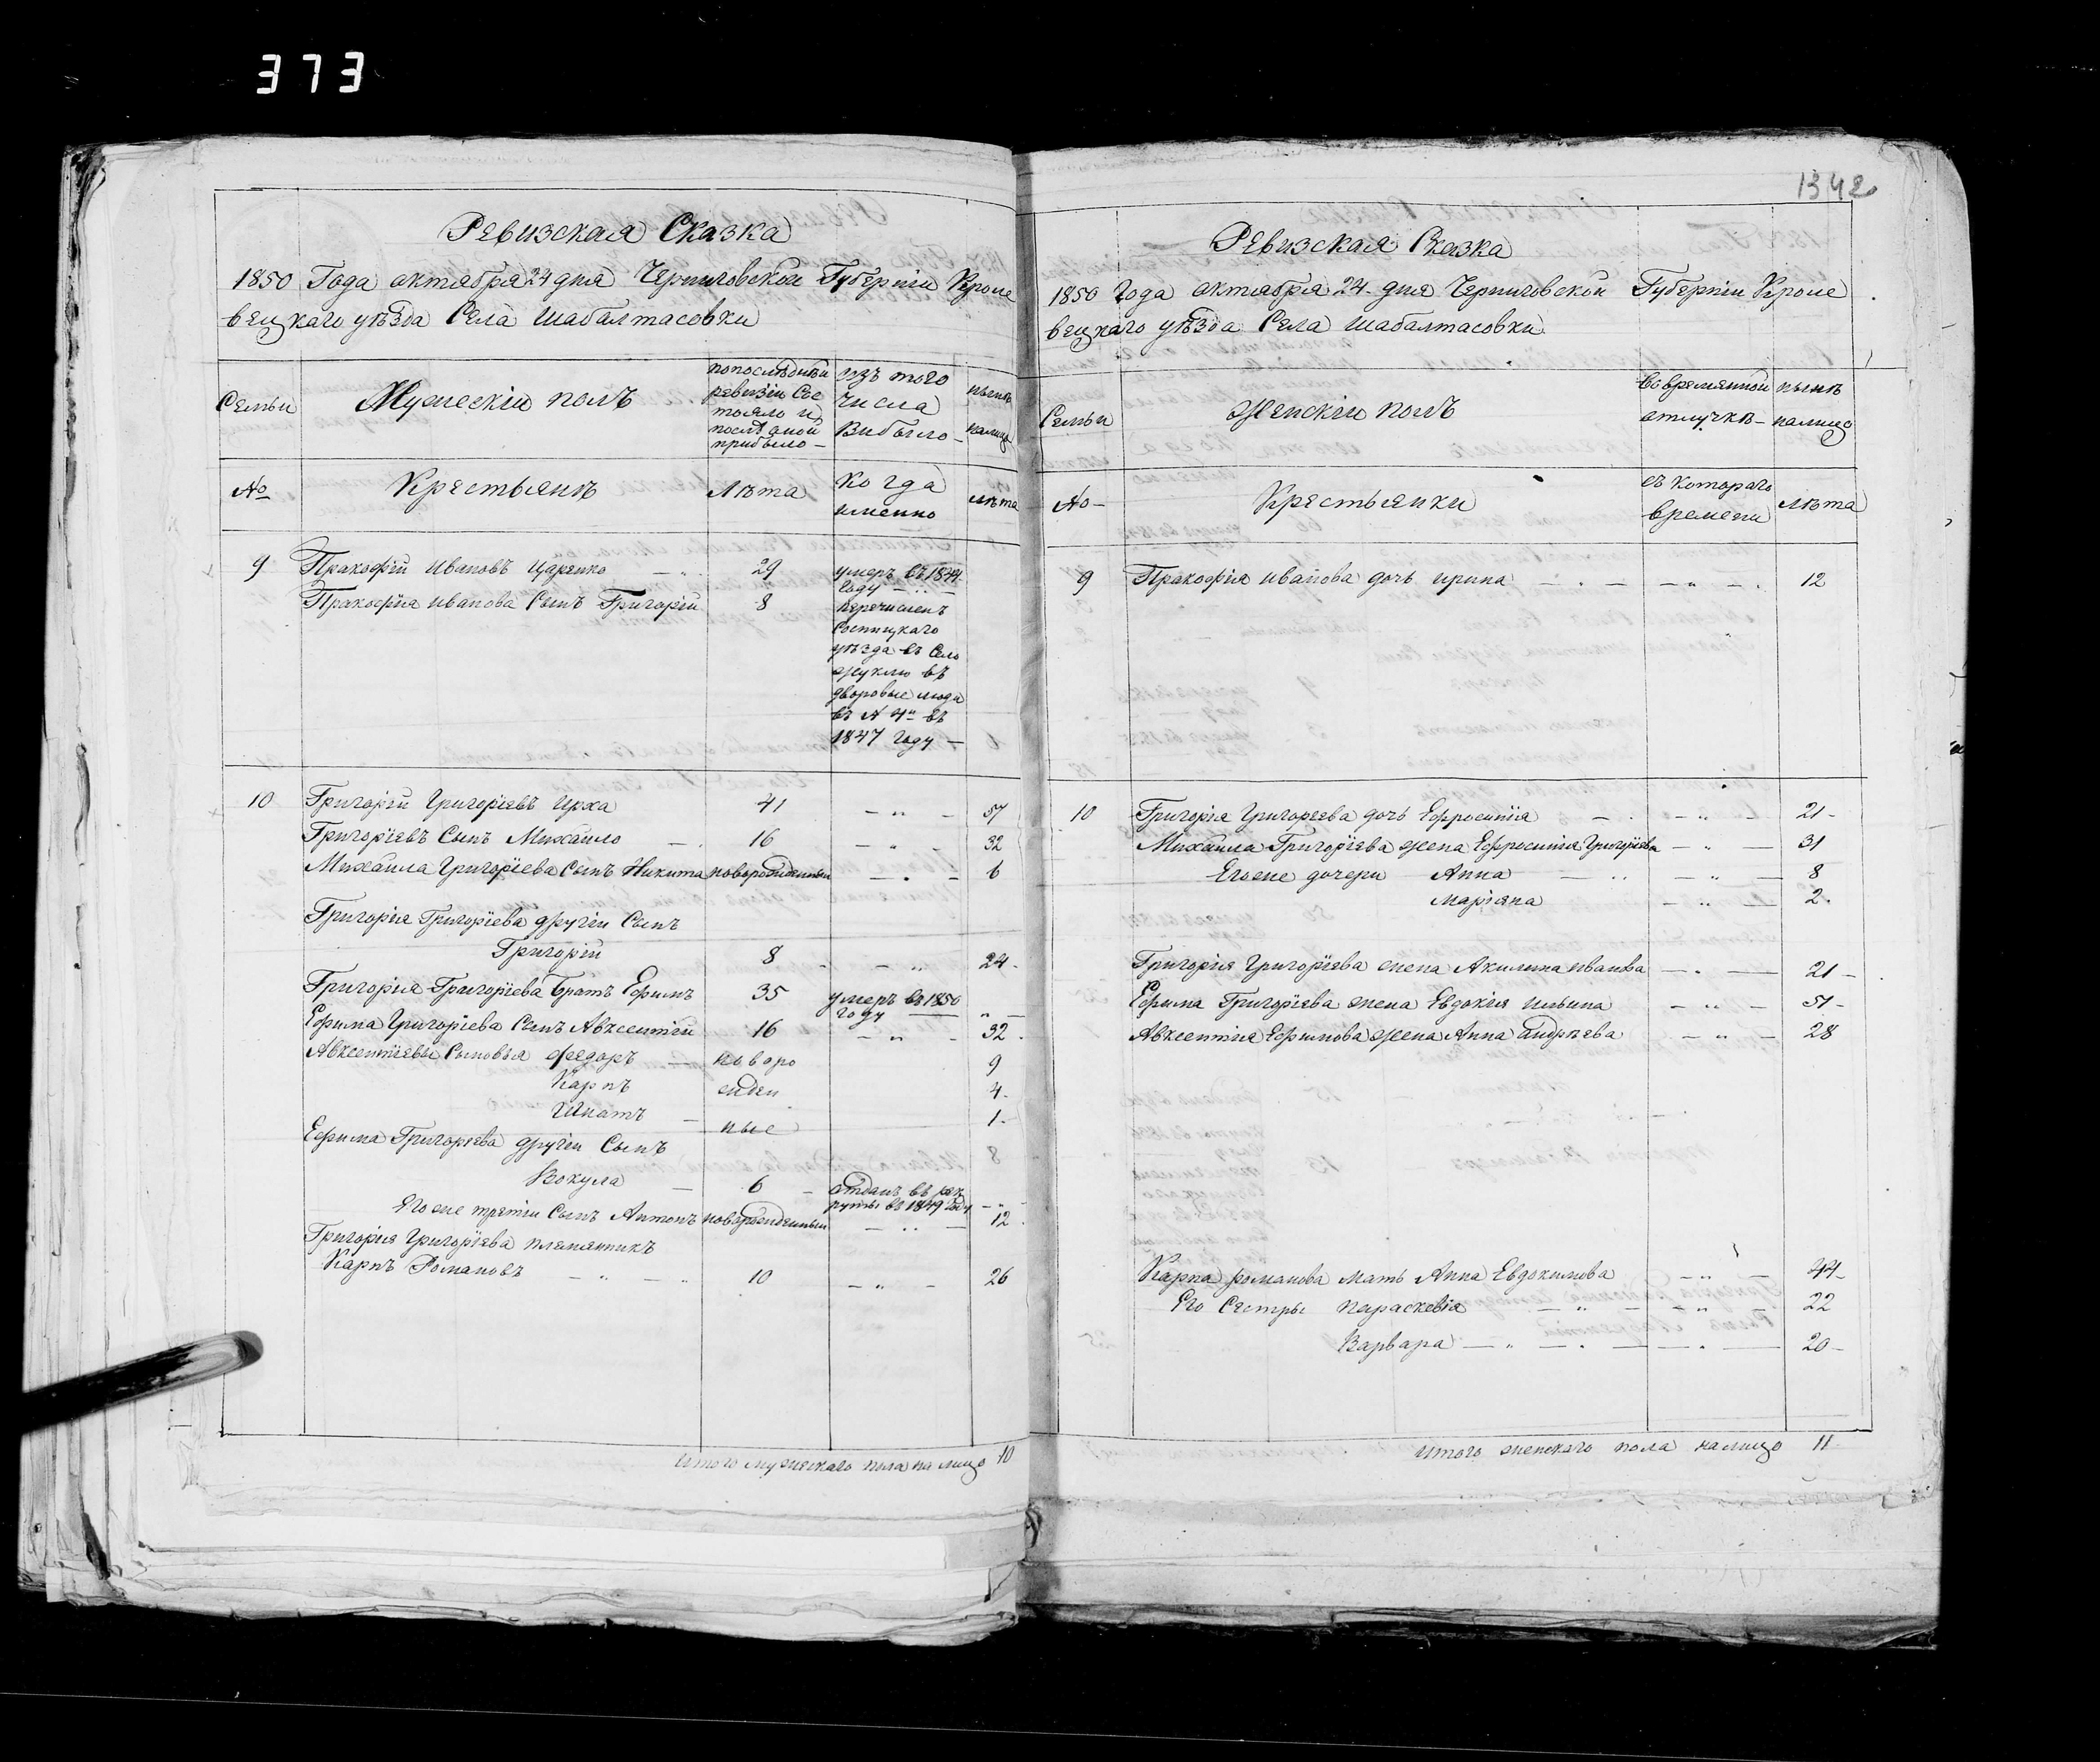 373
Ревизская Сказка
1850 Года октября 24 дня Черниговской Губерніи Кроле
вецкаго уѣзда Села Шабалтасовки
Семьи
Мужескій полъ
попослѣдней
ревизіи Сос
тояло и
послѣ оной
прибыло —
изъ того
числа
Выбыло —
нынѣ
налицо
№
Крестьянъ
Лѣта
когда
именно
лѣта
9 Пракофій Ивановъ Царенко 29 умеръ въ 1844
Году
Пракофія Иванова Сынъ Григорій 8 перечисленъ
Сосницкаго
уѣзда въ Село
Жуклю въ
дворовые люди
въ № 4й въ
1847 Году —
10 Григорій Григорьевъ Ирха 41 — „ — 57
Григорьевъ Сынъ Михайло 16 — „ — 32
Михайла Григорьева Сынъ Никита новорожденный — „ — 6
Григорія Григорьева другій Сынъ
Григорій 8 — „ 24
Григорія Григорьева братъ Ефимъ 35 умеръ въ 1850
Году — „ —
Ефима Григорьева Сынъ Авксентій 16 — „ — 32
Авксентіевы Сыновья Федоръ — новоро 9
Карпъ жден 4
Игнатъ — ные 1
Ефима Григорьева другій Сынъ
Вокула — 6 — отданъ въ рек
руты въ 1849 Году — „ —
Его же третій Сынъ Антонъ новорожденный — „ — 12
Григорія Григорьева племянникъ
Карпъ Романовъ — „ — „ 10 — „ — 26
Итого мужескаго пола на лицо 10
1342
Ревизская Сказка
1850 Года октября 24 дня Черниговской Губерніи Кроле
вецкаго уѣзда Села Шабалтасовки
Семьи
Женскій полъ
во временной
отлучкѣ —
нынѣ
налицо
№ —
Крестьянки
съ котораго
времени
Лѣта
9 Пракофія Иванова дочь Ирина — „ — 12
10 Григорія Григорьева дочь Ефросинія — „ — 21
Михайла Григорьева жена Ефросинія Григорьева — „ — 31
Его же дочери Анна — „ — 8
Маріяна — „ — 2
Григорія Григорьева жена Акилина Иванова — „ — 21
Ефима Григорьева жена Евдокія Ильина — „ — 51
Авксентія Ефимова жена Анна Андрѣева — „ — 28
Карпа Романова Мать Анна Евдокимова — „ — 44
Его Сестры Параскевія — „ — 22
Варвара — „ — 20
Итого женскаго пола налицо 11